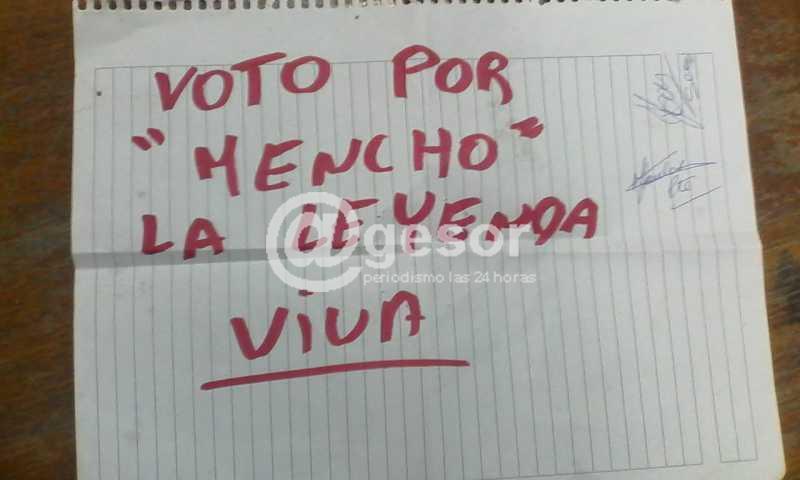 VOTO POR
"MENCHO"
LA LEYENDA
VIVA
@gesor
periodismo las 24 horas